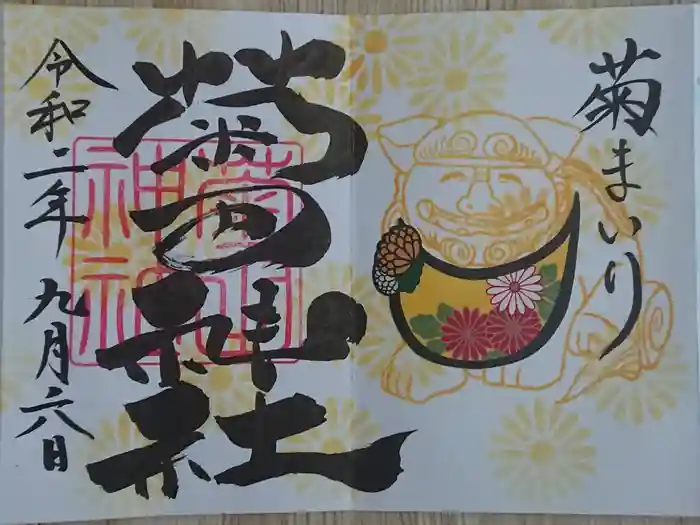 菊まいり
菊田神社
菊田
神社
令和二年 九月六日